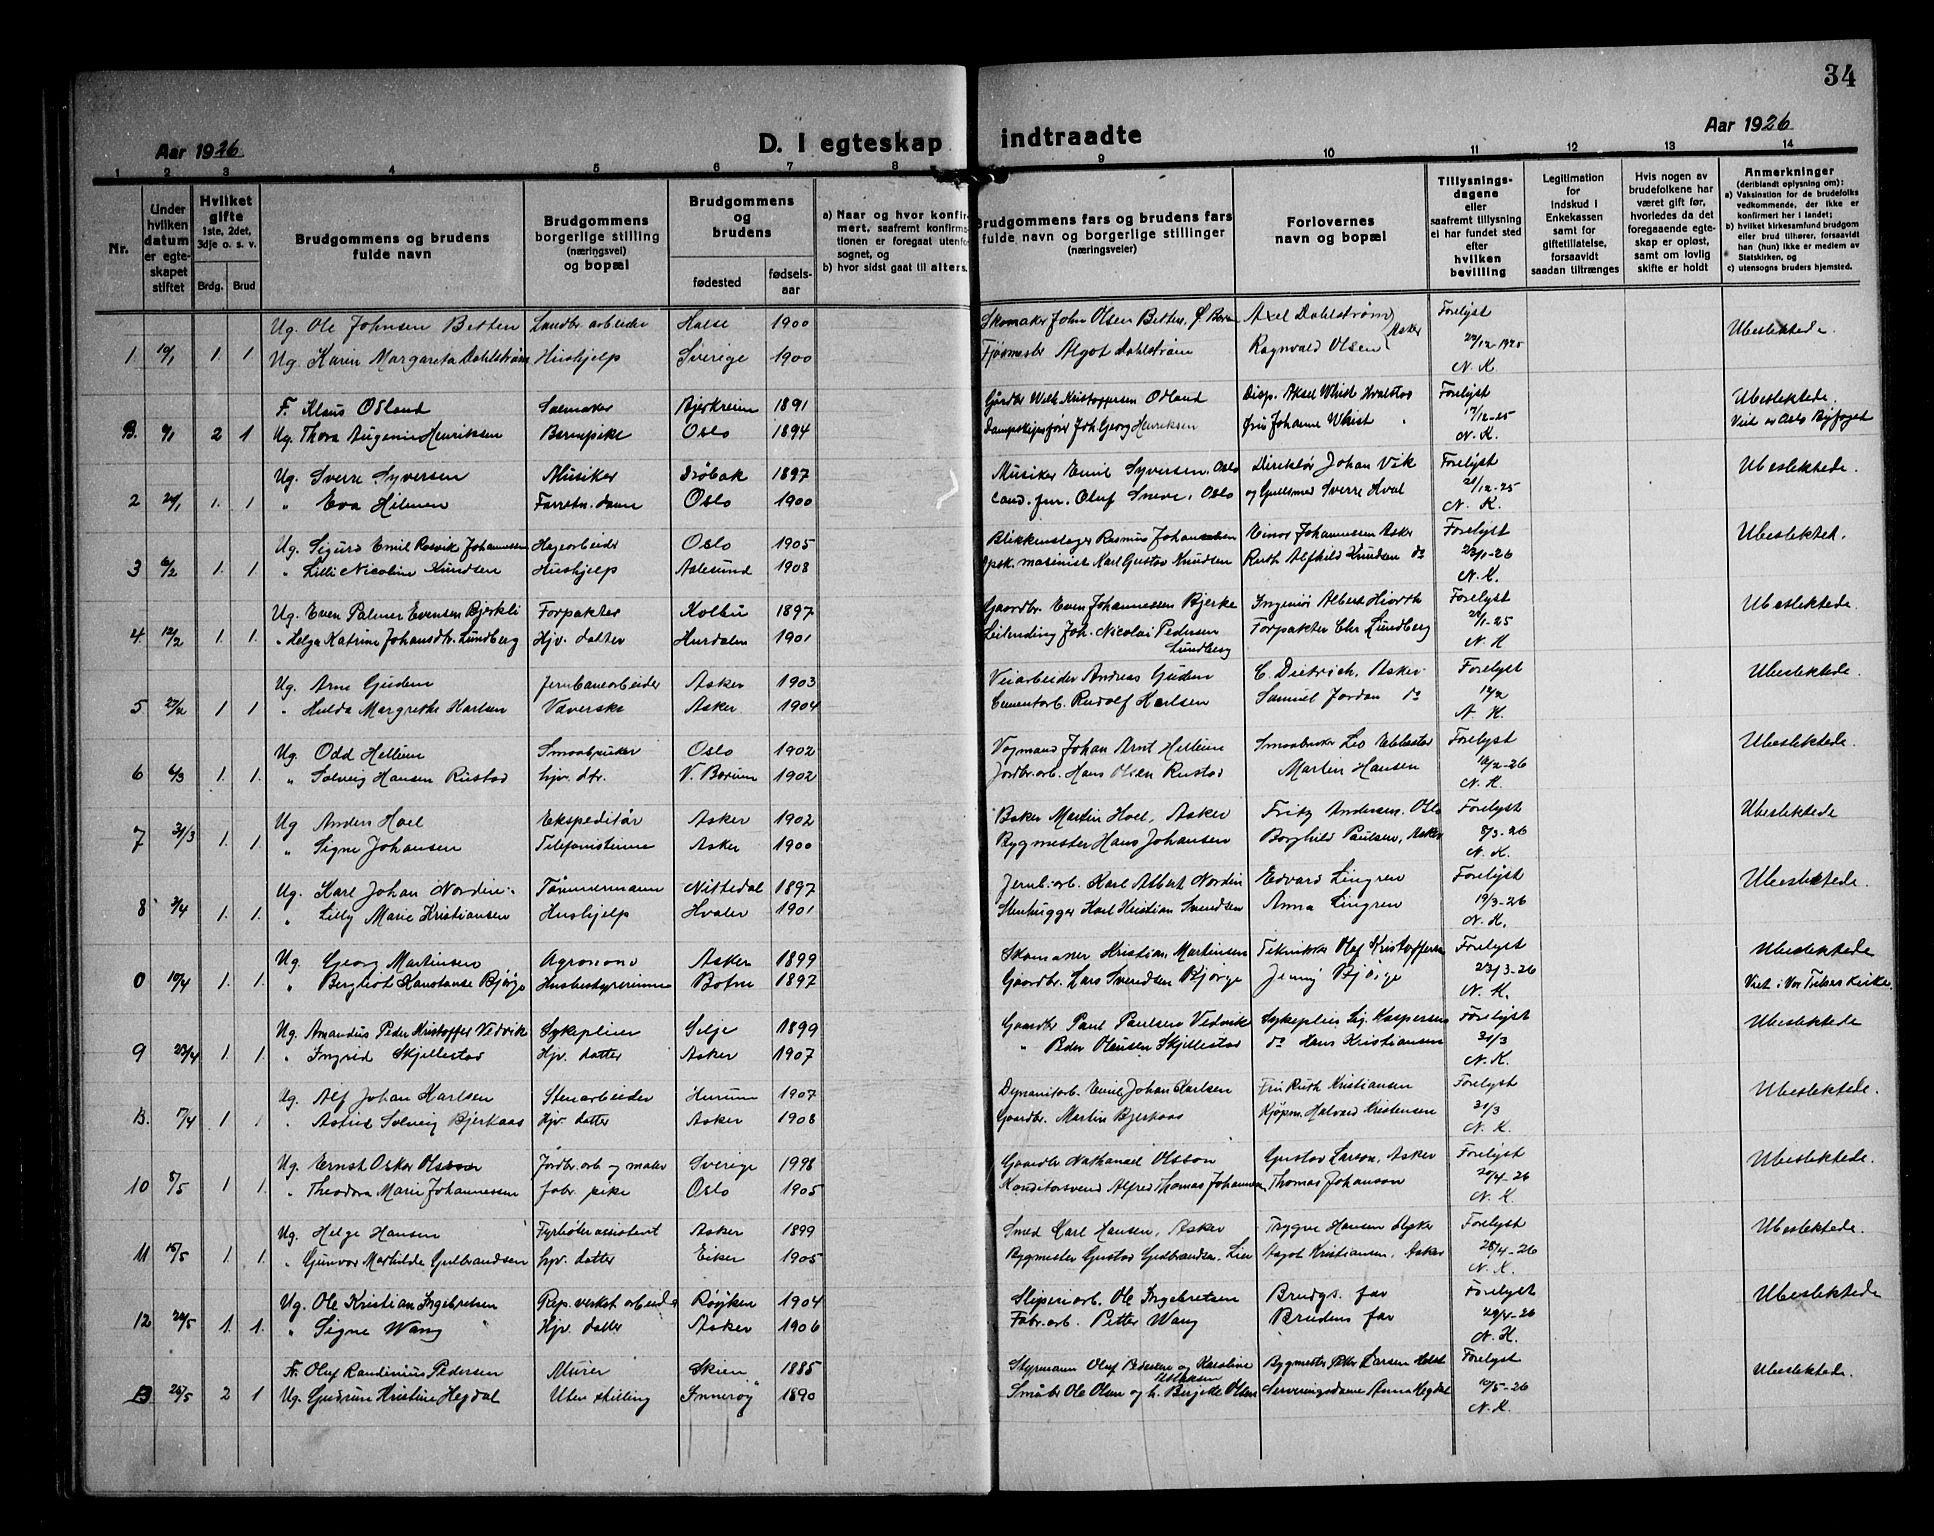 34
Aar 1926
D. I egteskap indtraadte
Aar 1926
1 2 3 4 5 6 7 8 9 10 11 12 13 14
Nr.
Under hvilken datum er egteskapet stiftet
Hvilket gifte 1ste, 2det, 3dje o. s. v.
Brdg. Brud
Brudgommens og brudens fulde navn
Brudgommens borgerlige stilling (næringsvei) og bopæl
Brudgommens og brudens
fødested
fødsels-aar
a) Naar og hvor konfirmert, saafremt konfirmationen er foregaat utenfor sognet, og
b) hvor sidst gaat til alters.
Brudgommens fars og brudens fars fulde navn og borgerlige stillinger (næringsveier)
Forlovernes navn og bopæl
Tillysnings-dagene eller saafremt tillysning ei har fundet sted efter hvilken bevilling
Legitimation for Indskud i Enkekassen samt for giftetillatelse, forsaavidt saadan tiltrænges
Hvis nogen av brudefolkene har været gift før, hvorledes da det foregaaende egteskap er opløst, samt om lovlig skifte er holdt
Anmerkninger (deriblandt oplysning om):
a) Vaksination for de brudefolks vedkommende, der ikke er konfirmert her i landet;
b) hvilket kirkesamfund brudgom eller brud tilhører, forsaavidt han (hun) ikke er medlem av Statskirken, og
c) utensogns bruders hjemsted.
Ug. Ole Johnsen Betten Landbr. arbeider Halse 1900 Skomaker John Olsen Betten Axel Dahlstrøm Forelyst Ubeslektede.
1 10/1 1. 1 Ug. Karin Margareta Dahlstrøm Hushjelp Sverige 1900 Fjøsmester Algot Dahlstrøm Ragnvald Olsen Asker 22/12-1925
N. K.
F. Klaus Odland Salmaker Bjerkreim 1891 Gårdbr. Kristoffersen Odland Disp. Aksel Whist Hvalstad Forelyst Ubeslektede.
B. 9/1 2 1 Ug. Thora Augenie Henriksen Barnepike Oslo 1894 Dampskipsfører Joh. Georg Henriksen Fru Johanne Whist " 17/12-25 Viet av Oslo Byfoged
N. K.
Ug. Sverre Syversen Musiker Drøbak 1897 Musiker Emil Syversen, Oslo Direktør Johan Vik Forelyst Ubeslektede.
2 24/1 1. 1 " Eva Hilmen Forretn. dame Oslo 1900 Cand. jur. Oluf Sneve, Oslo og Gullsmed Sverre Hval 21/12-25
N. K.
Ug. Sigurd Emil Rosvik Johannessen Hagearbeider Oslo 1905 Blikkenslager Rasmus Johannessen Einar Johannessen Asker Forelyst Ubeslektede.
3 6/2 1. 1. " Lilli Nicoline Knudsen Hushjelp Aalesund 1908 masinist Karl Gustav Knudsen Ruth Alfhild Knudsen do 22/1-26
N. K.
Ug. Even Palmer Evensen Bjerkli Forpakter Kolbu 1897 Gaardbr. Even Johannessen Bjerke Ingeniør Albert Hiorth Forelyst Ubeslektede.
4 12/2 1. 1. " Helga Katrine Johansdtr. Lundberg Hjv. datter Hurdalen 1901 Leilending Joh. Nicolai Pedersen Lundberg Forpakter Chr. Lundberg 21/1-25
N. K
Ug. Arne Guden Jernbanearbeider Asker 1903 Veiarbeider Andreas Guden C. Dietrich, Asker Forelyst Ubeslektede.
5 27/2 1. 1 " Hulda Margrethe Karlsen Væverske Asker 1904 Cementarb. Rudolf Karlsen Samuel Jordan do 12/2
N. K.
Ug. Odd Hellum Smaabruker Oslo 1902 Vognmand Johan Arnt Hellum Smaabruker Leo Forelyst Ubeslektede.
6 6/3 1. 1. " Solveig Hansen Rustad hjv. dtr. V. Bærum 1902 Jordbr.arb. Hans Olsen Rustad Martin Hansen 12/2-26
N. K.
Ug Anders Hoel Ekspeditør Asker 1902 Baker Martin Hoel, Asker Fritz Andersen, Oslo Forelyst Ubeslektede
7 31/3 1. 1. " Signe Johansen Telefonistinne Asker 1900 Bygmester Hans Johansen Borghild Paulsen, Asker 8/3-26
N. K.
Ug. Karl Johan Nordin Tømmermann Nittedal 1897 Jernb. arb. Karl Albert Nordin Edvard Lingren Forelyst Ubeslektede.
8 3/4 1. 1. " Lilly Marie Kristiansen Hushjelp Hvaler 1901 Stenhugger Karl Kristian Svendsen Anna Lingren 19/3-26
N. K.
Ug. Georg Martinsen Agronom Asker 1899 Skomaker Kristian Martinsen Tekniker Olaf Kristoffersen Forelyst Ubeslektede
0 10/4 1. 1. " Bergliot Konstanse Bjørge Husbestyrerinne Botne 1897 Gaardbr. Lars Svendsen Bjørge Jenny Bjørge 23/3-26 Viet i Vor Frelsers Kirke.
N. K.
Ug. Amandus Peder Kristoffer Vedvik Sykepleier Selje 1899 Gaardbr Paul Paulsen Vedvik Sykepleier Sig. Kaspersen Forelyst Ubeslektede
9 23/4 1. 1. " Ingrid Skjellestad Hjv. datter Asker 1907 " Peder Olausen Skjellestad do Hans Kristiansen 31/3
N. K.
Ug. Alf Johan Karlsen Stenarbeider Hurum 1907 Dynamitarb. Emil Johan Karlsen Fru Ruth Kristiansen Forelyst Ubeslektede.
B. 17/4 1 1 " Astrid Solveig Bjerkaas Hjv. datter Asker 1908 Gaardbr. Martin Bjerkaas Kjøpm. Halvard Kristensen 31/3
N. K.
Ug. Ernst Oskar Olsson Jordbr. arb. og maler Sverige 1998 Gaardbr Nathanael Olsson Gustav Larson, Asker Forelyst Ubeslektede.
10 8/5 1 1. " Theodora Marie Johannessen fabr. pike Oslo 1905 Konditorsvend Alfred Thomas Johannessen Thomas Johanson 20/4-26
N. K.
Ug. Helge Hansen Fyrbøterassistent Asker 1899 Smed Karl Hansen, Asker Trygve Hansen Asker Forelyst Ubeslektede.
11 15/5 1. 1. " Gunvor Mathilde Gulbrandsen hjv. datter Eiker 1905 Bygmester Gustav Gulbrandsen, Lier Aagot Kristiansen, Asker 28/4-26
N. K.
Ug. Ole Kristian Ingebretsen Rep. verkst. arbeider Røyken 1904 Sliperiarb. Ole Ingebretsen Brudgs. far Forelyst Ubeslektede
12 24/5 1. 1. " Signe Wang Hjv. datter Asker 1906 Fabr. arb. Petter Wang Brudens far 29/4-26
N. K.
Fr. Oluf Randinius Pedersen Murer Skien 1885 Styrmann Oluf Pedersen og Karoline Bygmester Petter Larsen Holst Forelyst Ubeslektede.
B 26/5 2 1 Ug. Gudrun Kristine Hegdal Uten stilling Inderøy 1890 Småbr. Ole Olsen og h. Birgitte Olsen Serveringsdame Anna Hegdal 10/5-26
N. K.